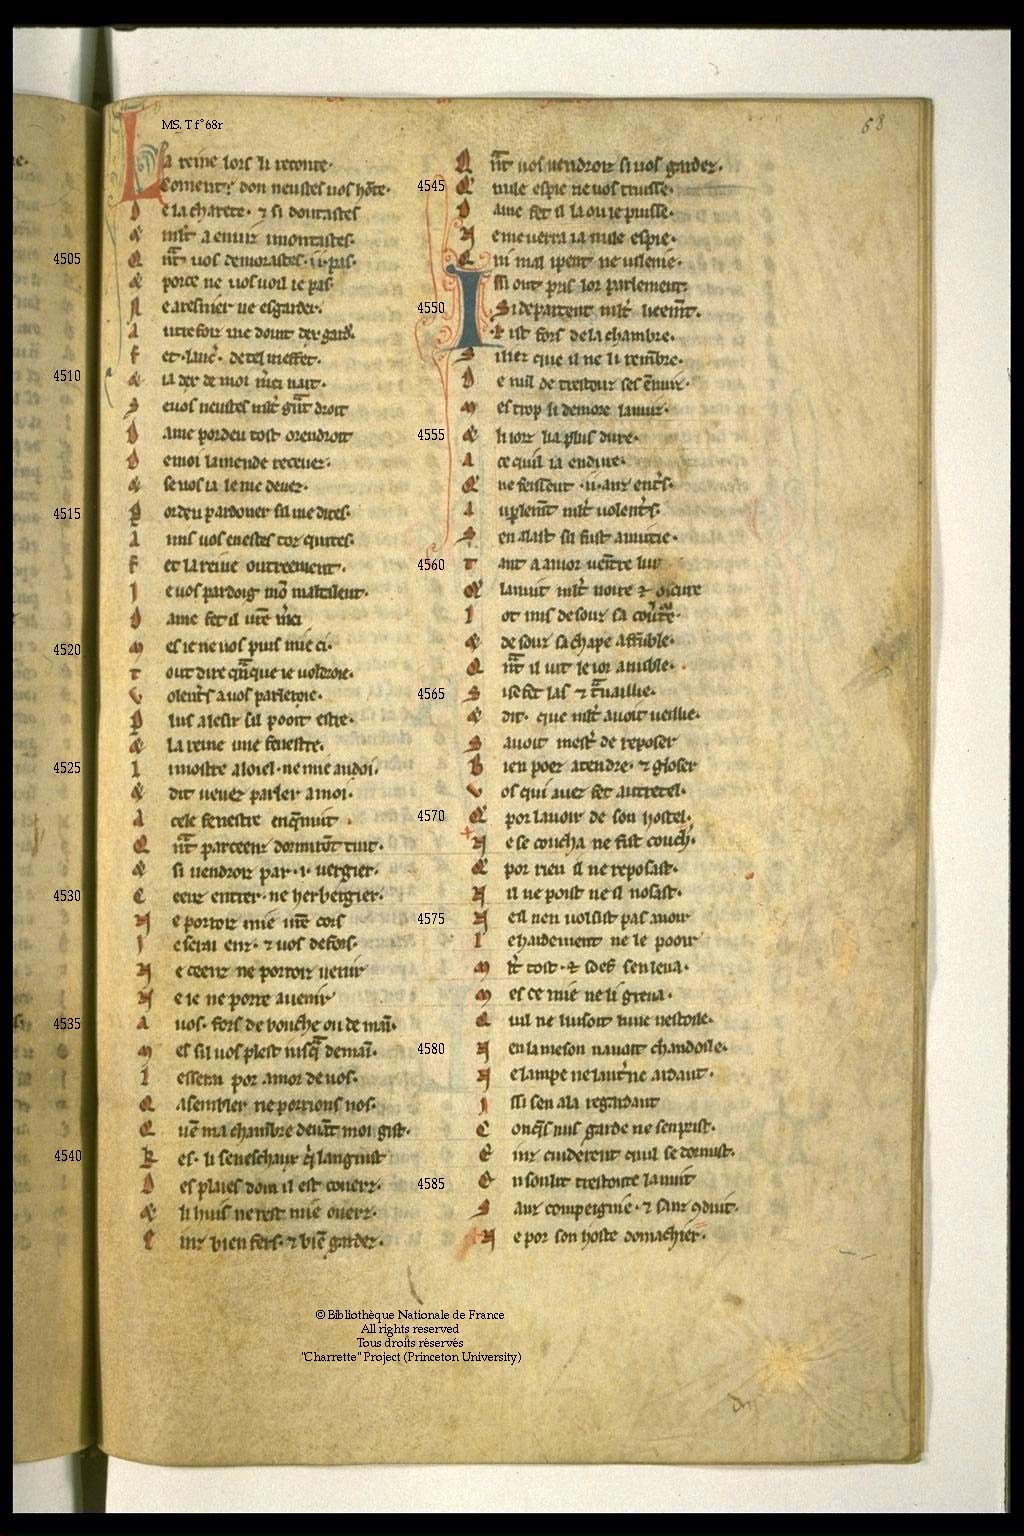 MS. T f° 68r
68
La reine lors li reconte·
Coment? don neustes vos hōte·
De la charete· ⁊ si doutastes
& mlt a enviz i montastes·
4505 Qnt vos demorastes ·ii· pas·
& por ce ne vos voil ie pas
Ne aresnier ne esgarder·
Autre foiz me doint dex gard'
Fet lanc'· de tel meffet·
4510 & ia dex de moi m'ci nait·
Se vos neustes mlt gnt droit
Dame por deu tost orendroit
De moi lamende recevez·
& se vos ia le me devez·
4515 Por deu pardoner sil me dites·
Amis vos en estes toz quites·
Fet la reine outreement·
Ie vos pardoig mō maltalent·
Dame fet il vrē m'ci
4520 Mes ie ne vos puis mie ci·
Tout dire qnque ie voldroie·
Volent's a vos parleroie·
Plus a lesir sil pooit estre·
& la reine une fenestre·
4525 Li mostre a loiel· ne mie au doi·
& dit venez parler a moi·
A cele fenestre enqnuit·
Qnt parceenz dormirōt tuit·
& si vendroiz par ·i· vergier·
4530 Ceenz entrer· ne herbergier·
Ne porroiz mie vrē cors
Ie serai enz· ⁊ vos defors·
Ne ceenz ne porroiz venir
Ne ie ne porre avenir
4535 A vos· fors de bouche ou de mai·
Mes sil vos plest iusq demai·
I esserai por amor de vos·
Qasembler ne porrions nos·
Quē ma chambre devāt moi gist·
4540 Kes· li seneschaux q languist
Des plaies dom il est coverz·
& li huis ne rest mie overz·
Einz bien fers· ⁊ biē gardez·
Qnt vos vendroiz si vos gardez·
4545 Que nule espie ne vos truisse·
Dame fet il la ou ie puisse·
Ne me verra ia nule espie·
Qui mal i pent ne vilenie·
Issi ont pris lor parlement
4550 Si departent mlt lieemt·
Lr ist fors de la chambre·
Si liez que il ne li rembre·
De nul de trestouz ses ēnuiz·
Mes trop li demore la nuiz·
4555 & li iorz li a plus dure·
A ce quil i a endure·
Que ne feissent ·ii· anz ent's·
Au plemt mlt volent's·
Sen alast sil fust anuitie·
4560 Tant a au ior veītre luit
Que la nuit mlt noire & oscure
Iot mis desouz sa cov'te·
& desouz sa chape affuble·
Qnt il vit le ior anuble·
4565 Si se fet las ⁊ tvaillie·
& dit· que mlt avoit veillie·
Savoit mest' de reposer
Bien poez atendre· ⁊ gloser
Vos qui avez fet autretel·
4570 Que por la voir de son hostel·
Ne se coucha ne fist couch'·
Que por rien il ne reposast·
Ne il ne poist ne il nosast·
4575 Ne il nen volsist pas avoir
Le hardement ne le pooir
Mlt tost· & soef sen leva·
Mes ce mie ne li greva·
Quil ne luisoit lune nestoile·
4580 Nen la meson navoit chandoile·
Ne lampe ne lant'ne ardant·
Issi sen ala regardant
Conqs nus garde ne sen prist·
Einz cuiderent quil se dormist·
4585 En son lit trestoute la nuit
Sanz compeignie· ⁊ sanz 9duit·
Ne por son hoste domachier·
© Bibliothèque Nationale de France
All rights reserved
Tous droits réservés
"Charrette" Project (Princeton University)